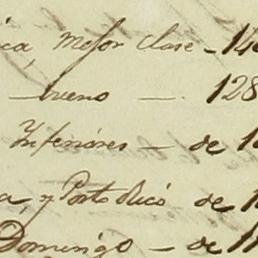 ica, Mejor Clase - 14
— bueno — . 128
Inferiores — de 1
a y Porto Rico de 1
Domingo — de 1